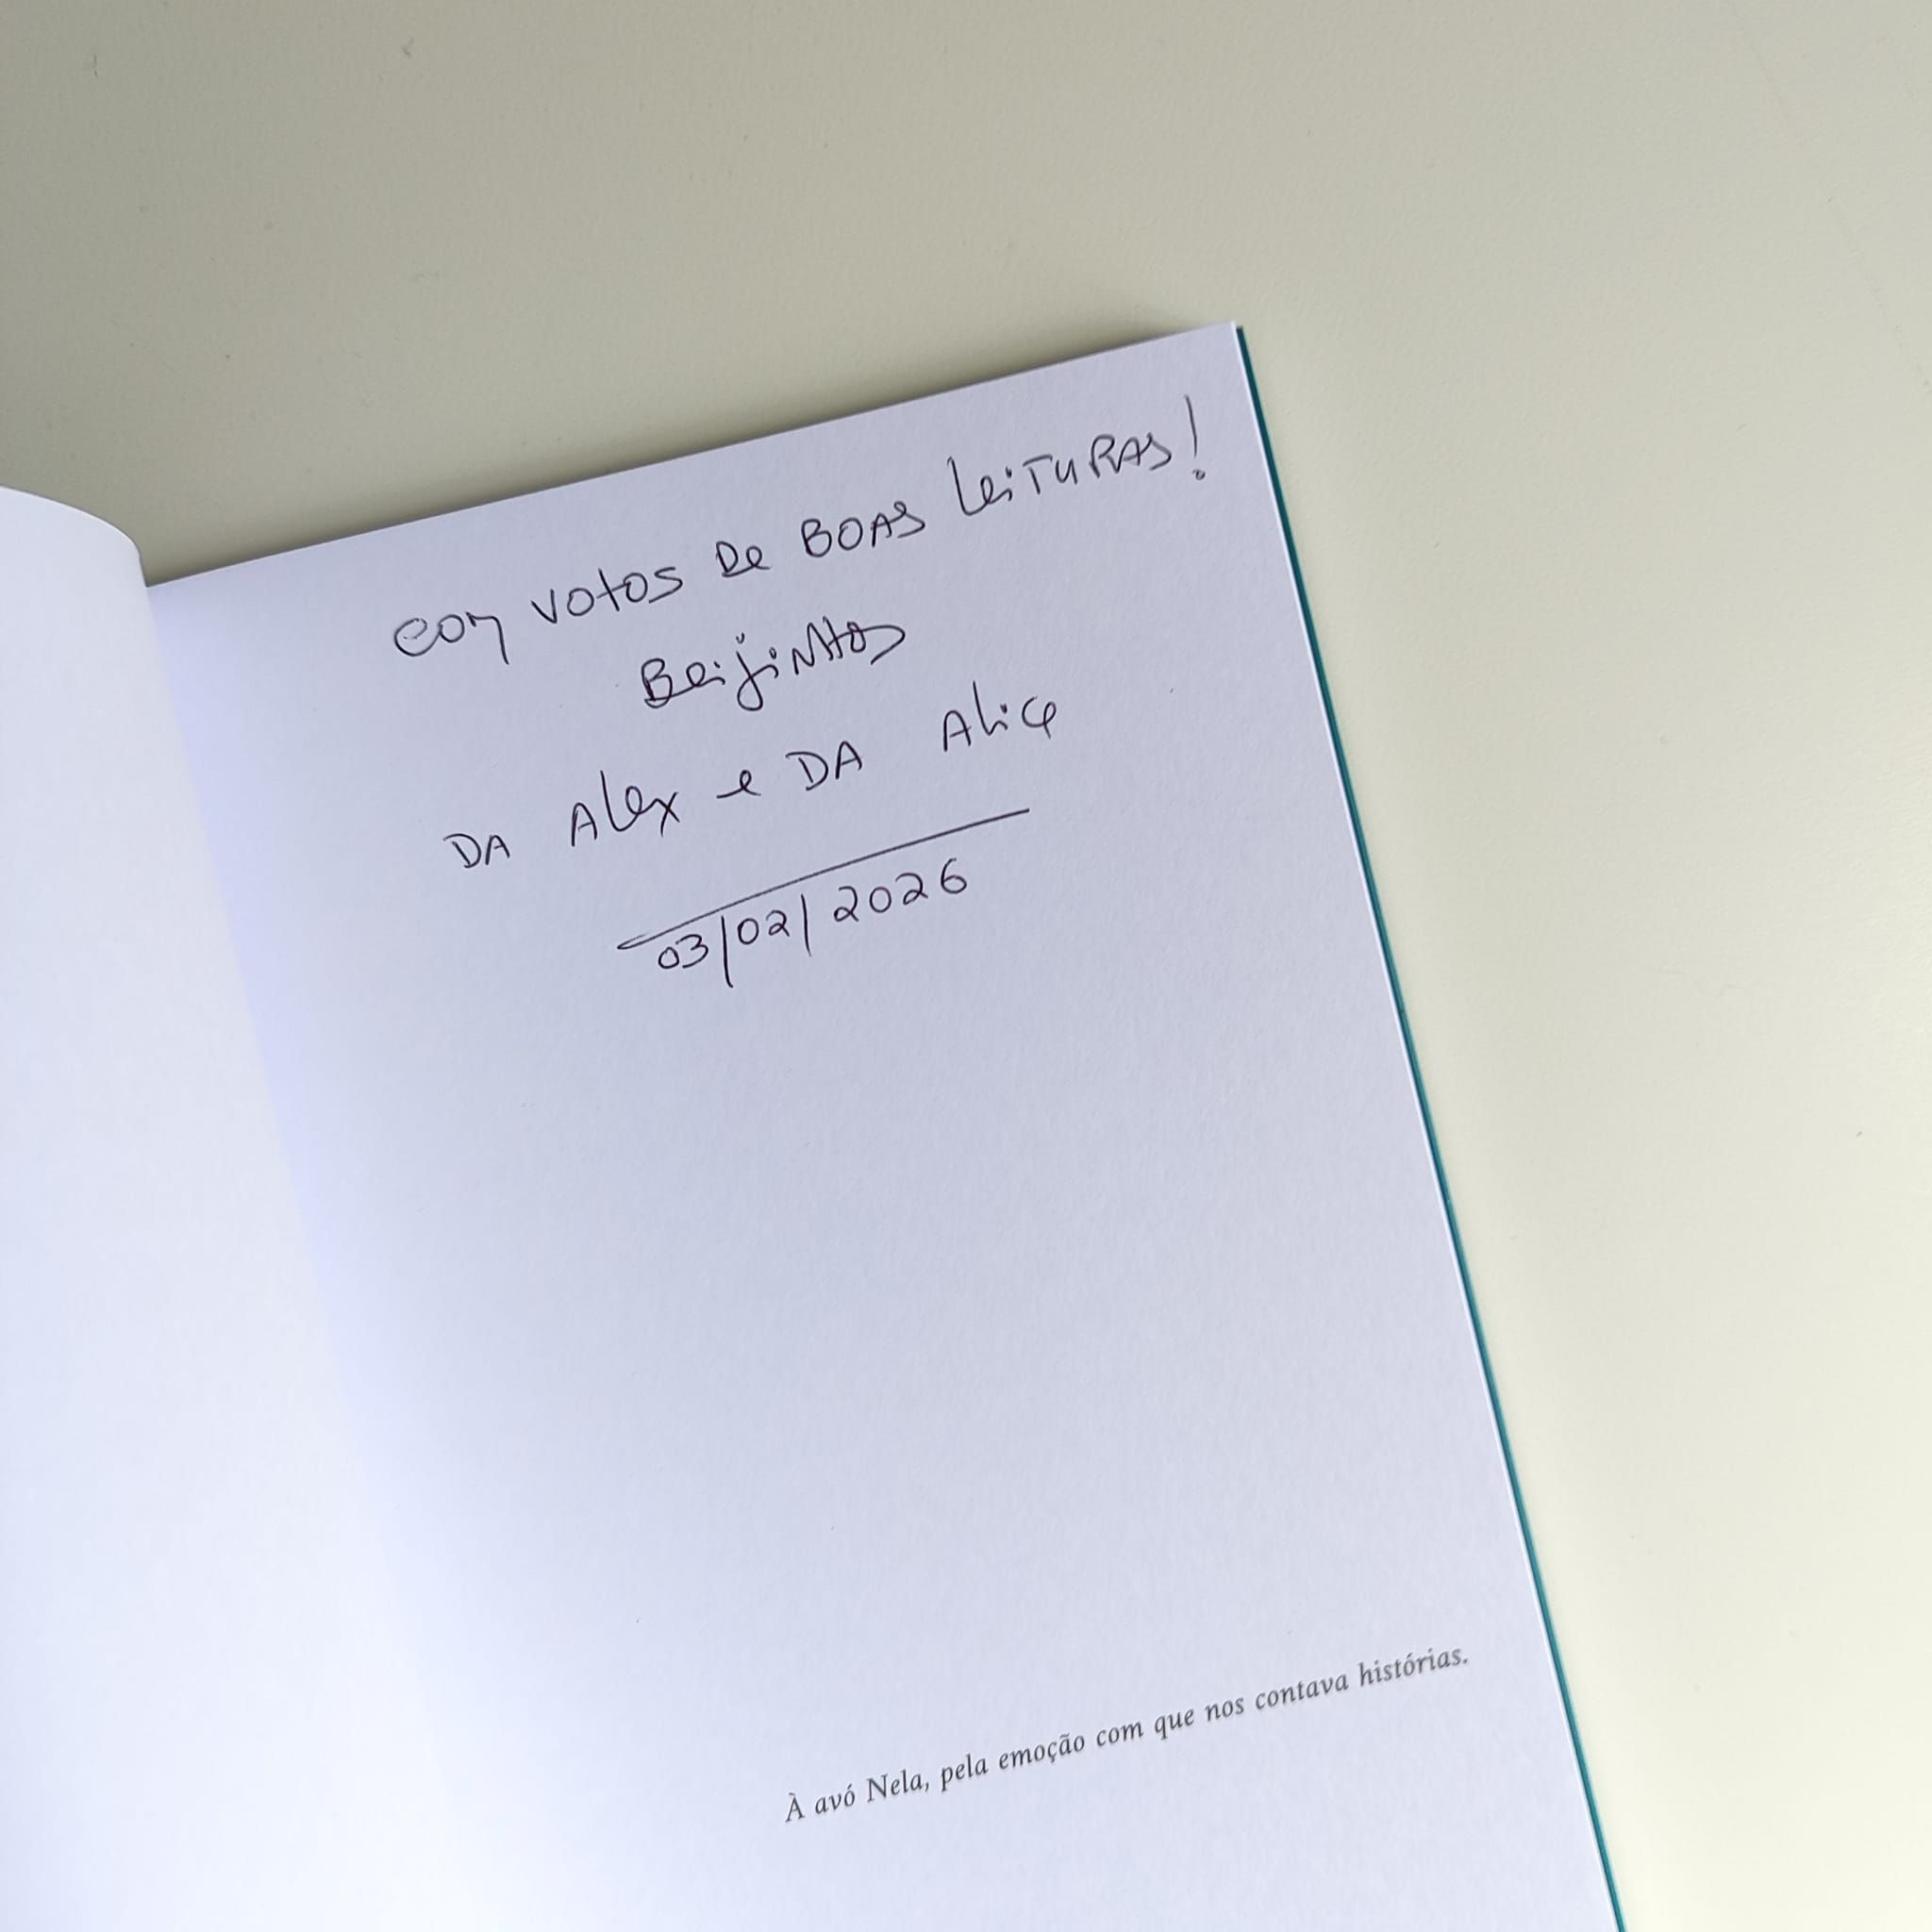 com votos De BOAS leiTURAS!
Beijinhos
DA Alex e DA Alice
03/02/2026
À avó Nela, pela emoção com que nos contava histórias.